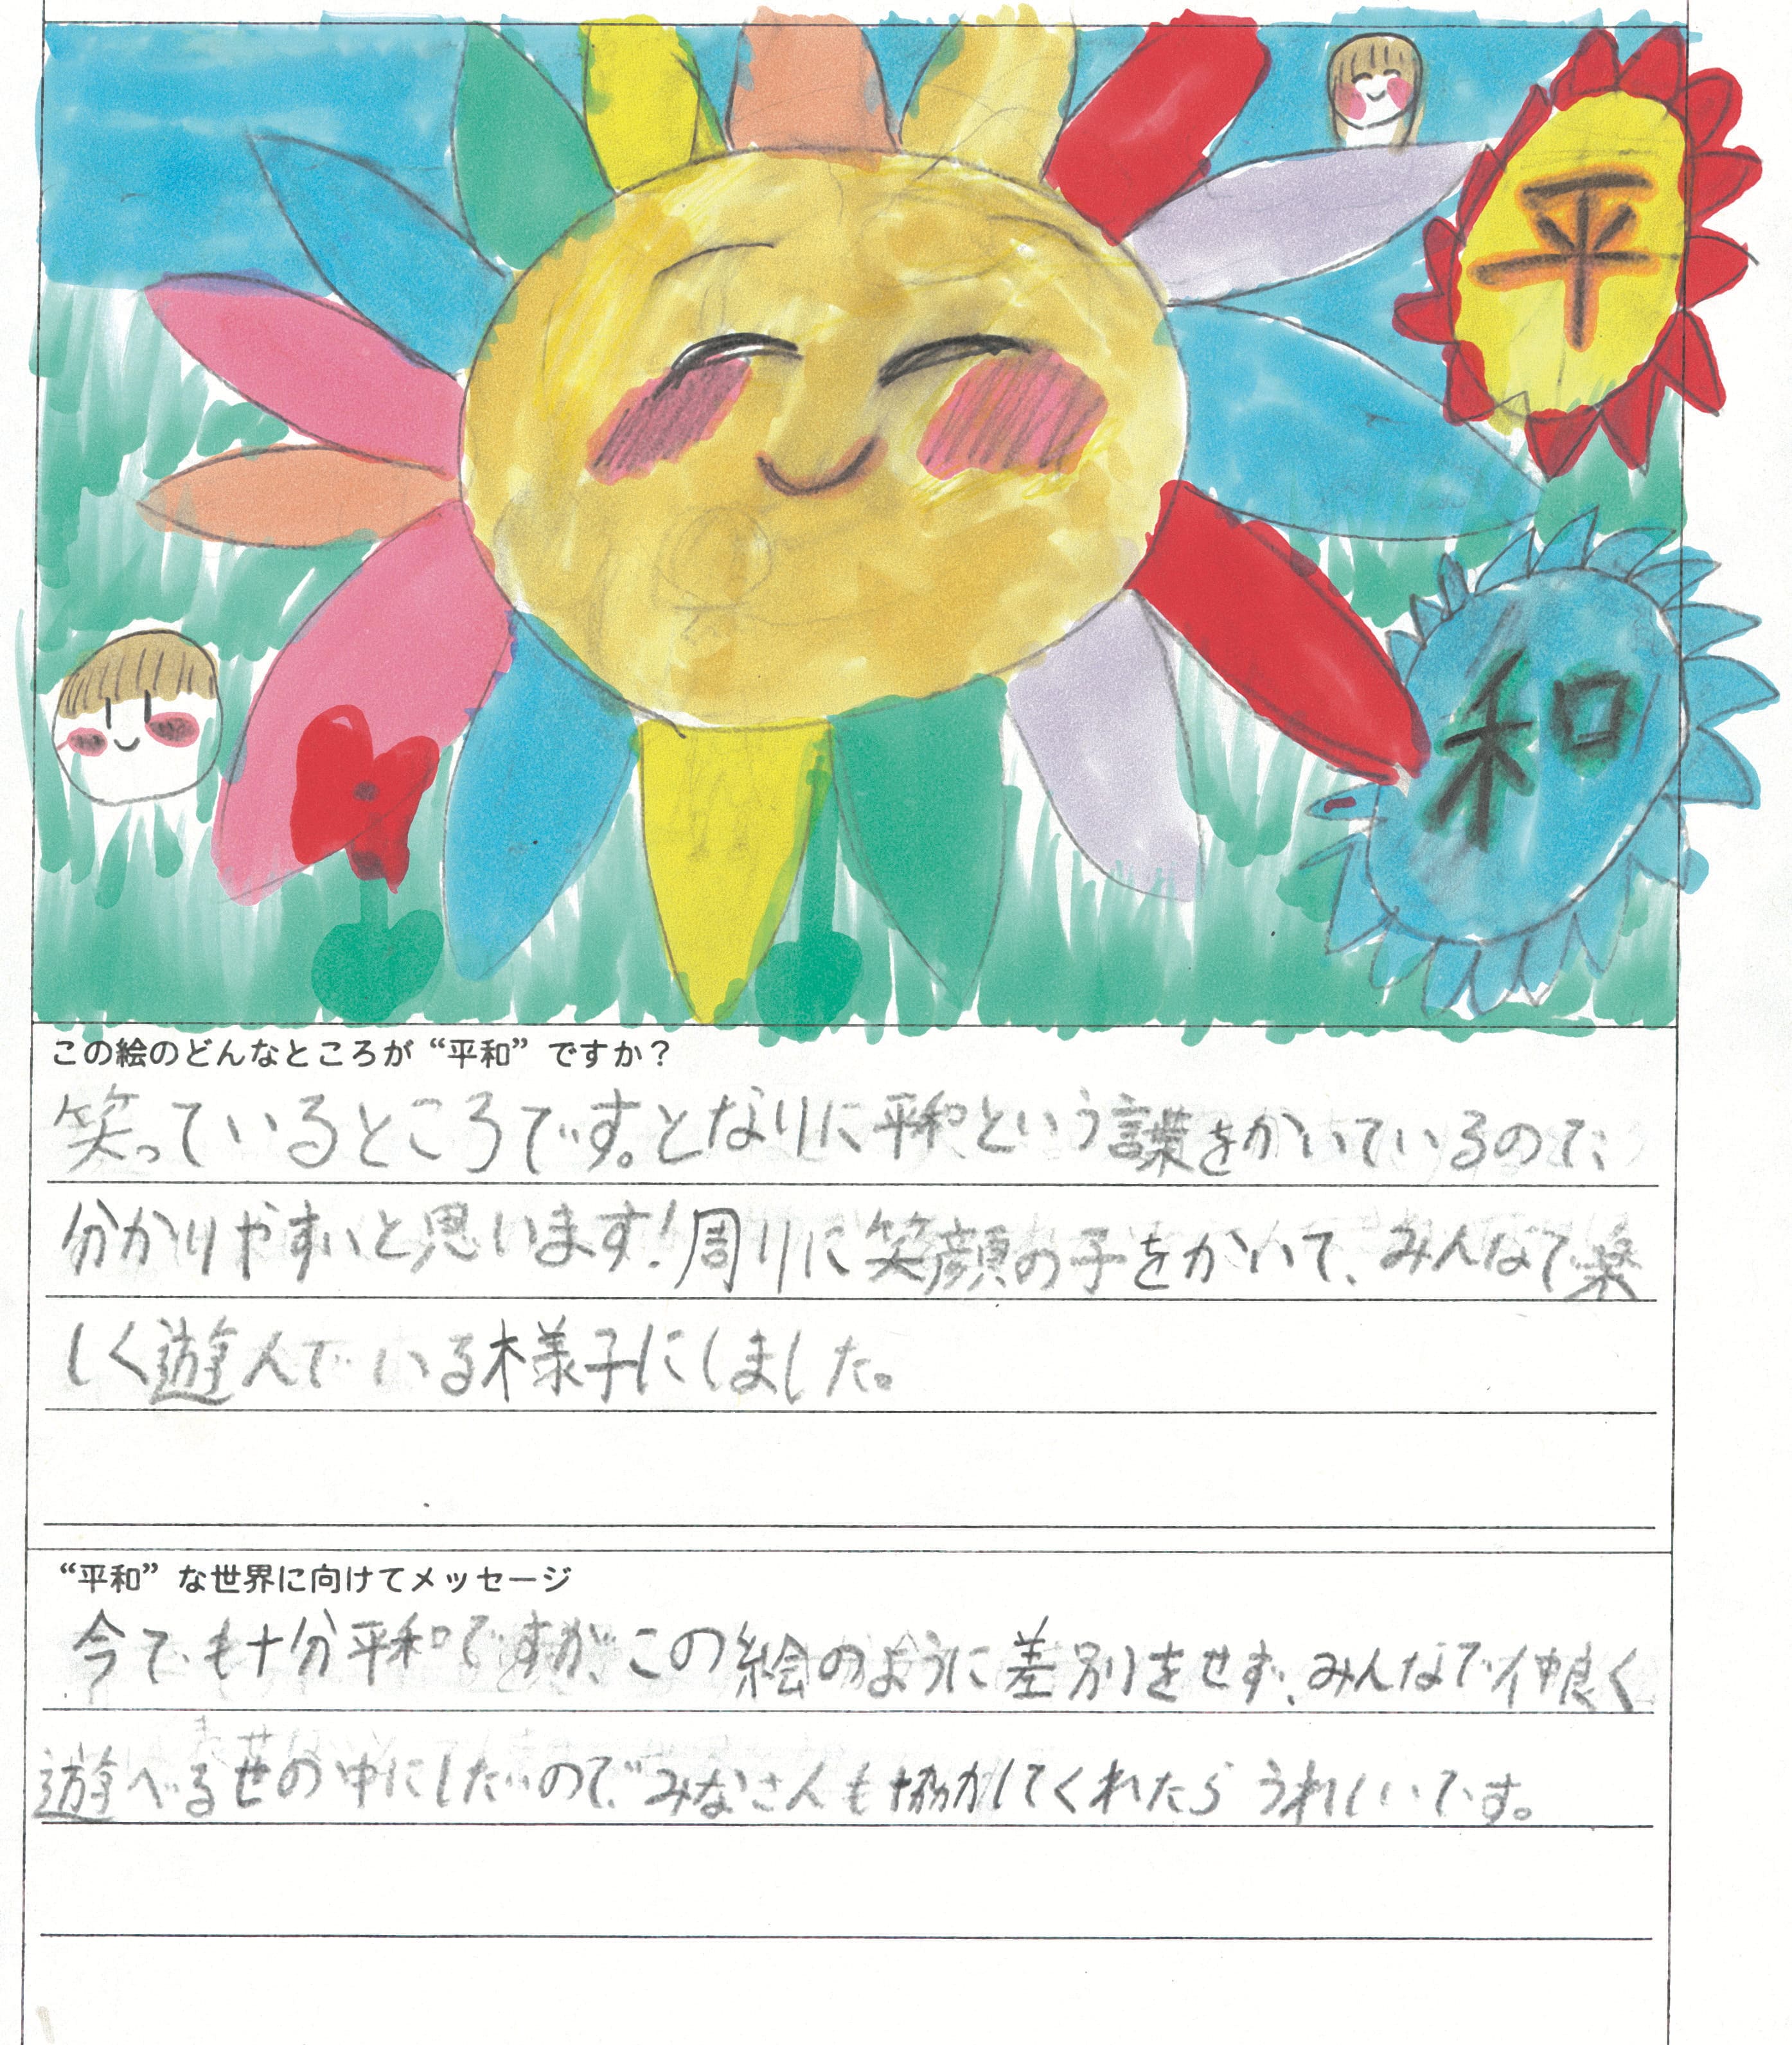 平
和
この絵のどんなところが“平和”ですか？
笑っているところです。となりに平和という言葉をかいているので、
分かりやすいと思います！周りに笑顔の子をかいて、みんなで楽
しく遊んでいる様子にしました。
“平和”な世界に向けてメッセージ
今でも十分平和ですが、この絵のように差別をせず、みんなで仲良く
遊べる世の中にしたいので、みなさんも協力してくれたらうれしいです。